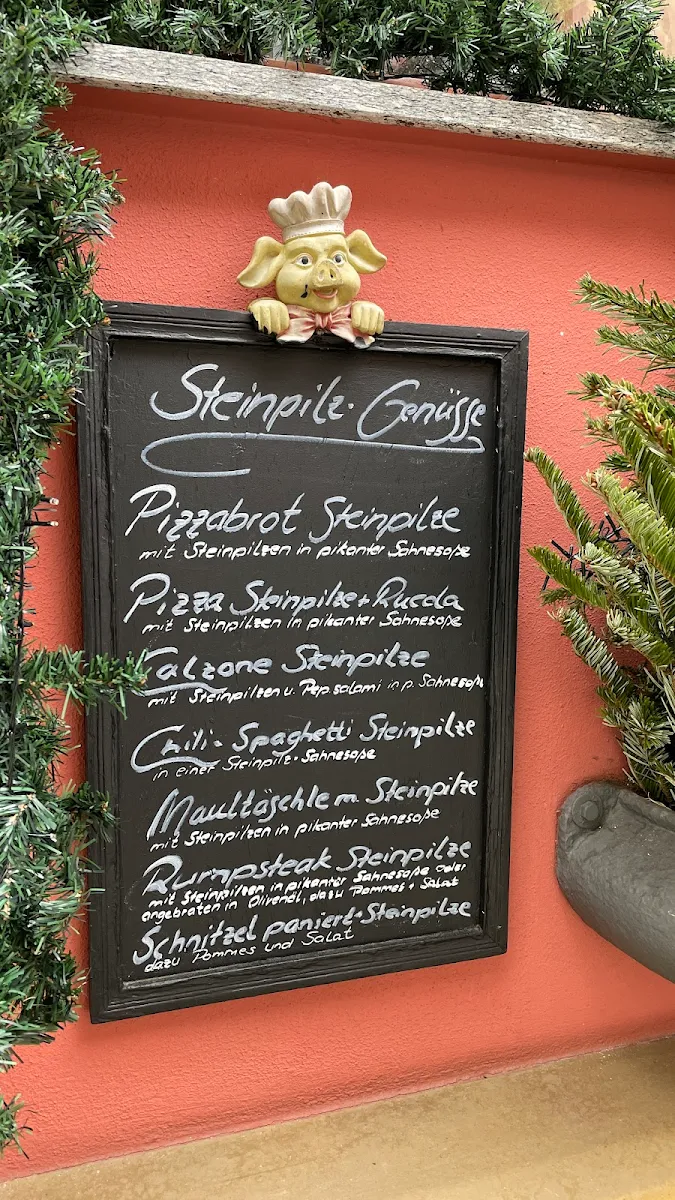 Steinpilz-Genüsse
Pizzabrot Steinpilze
mit Steinpilzen in pikanter Sahnesoße
Pizza Steinpilze + Rucola
mit Steinpilzen in pikanter Sahnesoße
Calzone Steinpilze
mit Steinpilzen u. Pep.salami in p. Sahnesoße
Chili-Spaghetti Steinpilze
in einer Steinpilz-Sahnesoße
Maultäschle m. Steinpilze
mit Steinpilzen in pikanter Sahnesoße
Rumpsteak Steinpilze
mit Steinpilzen in pikanter Sahnesoße oder
angebraten in Olivenöl, dazu Pommes + Salat
Schnitzel paniert + Steinpilze
dazu Pommes und Salat